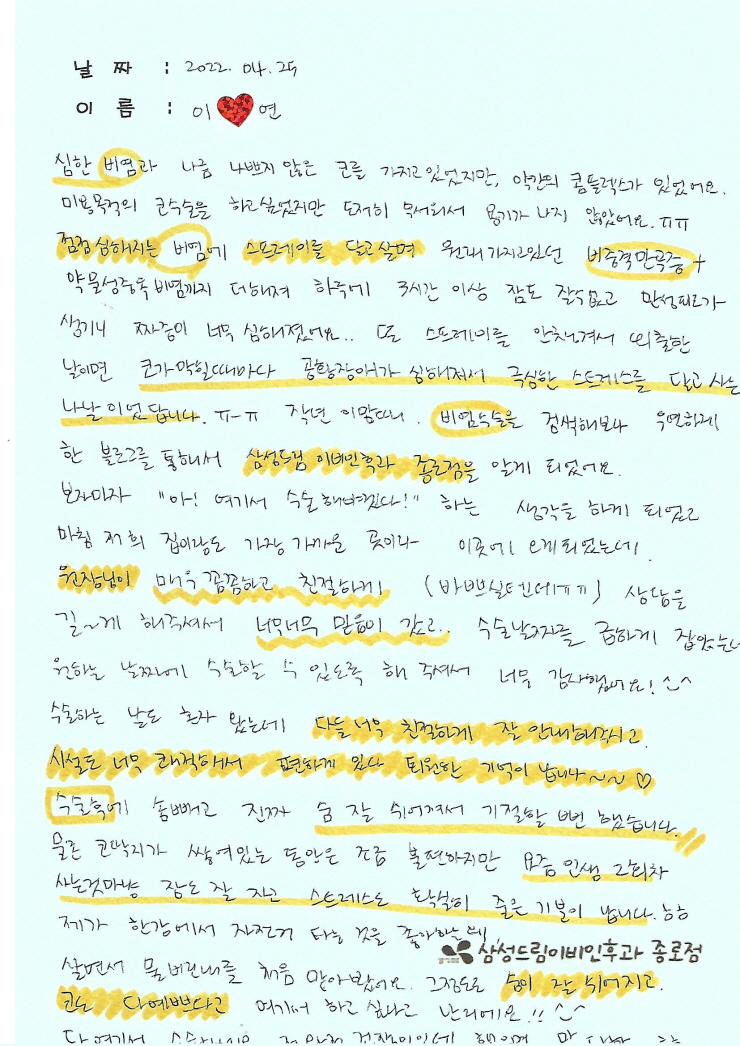 날 짜 : 2022. 04. 25
이 름 : 이 연
심한 비염과 나름 나쁘지 않은 코를 가지고있었지만, 약간의 콤플렉스가 있었어요.
미용목적의 코수술을 하고싶었지만 도저히 무서워서 용기가 나지 않았어요. ㅠㅠ
점점 심해지는 비염에 스프레이를 달고살며 원래 가지고있던 비중격만곡증 +
약물성중독 비염까지 더해져 하루에 3시간 이상 잠도 잘수없고 만성피로가
생기니 짜증이 너무 심해졌었어요.. 또 스프레이를 안챙겨서 외출한
날이면 코가막힐때마다 공황장애가 심해져서 극심한 스트레스를 달고 사는
나날이었답니다. ㅠ-ㅠ 작년 이맘때. 비염수술을 검색해보다 우연하게
한 블로그를 통해서 삼성드림 이비인후과 종로점을 알게 되었어요.
보자마자 "아! 여기서 수술해야겠다!" 하는 생각을 하게 되었고
마침 저희 집이랑도 가장 가까운 곳이라 이곳에 오게되었는데.
원장님이 매우 꼼꼼하고 친절하게 (바쁘실텐데ㅠㅠ) 상담을
길~게 해주셔서 너무너무 믿음이 갔고.. 수술날짜를 급하게 잡았는데
원하는 날짜에 수술할 수 있도록 해 주셔서 너무 감사했어요! ^^
수술하는 날도 혼자 왔는데 다들 너무 친절하게 잘 안내해주시고.
시설도 너무 쾌적해서 편하게 있다 퇴원한 기억이 납니다~~ ♡
수술후에 솜빼고 진짜 숨 잘 쉬어져서 기절할 뻔 했습니다.
물론 코딱지가 쌓여있는 동안은 조금 불편하지만 요즘 인생 2회차
사는것마냥 잠도 잘 자고 스트레스도 확실히 줄은 기분이 납니다.
제가 한강에서 자전거 타는 것을 좋아하는데
살면서 물 비린내를 처음 맡아봤어요. 그정도로 숨이 잘 쉬어지고.
코도 다예쁘다고 여기서 하고 싶다고 난리에요!! ^^
삼성드림이비인후과 종로점